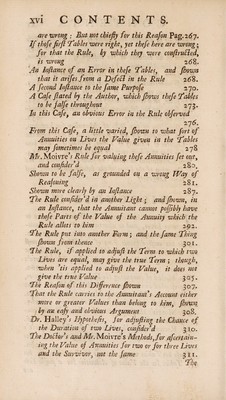 xvi CONTENTS.
are wrong: But not chiefly for this Reason Pag. 267.
If those first Tables were right, yet these here are wrong;
for that the Rule, by which they were constructed,
is wrong 268.
An Instance of an Error in these Tables, and shown
that it arises from a Defect in the Rule 268.
A second Instance to the same Purpose 270.
A Case stated by the Author, which shows these Tables
to be false throughout 273.
In this Case, an obvious Error in the Rule observed
276.
From this Case, a little varied, shown to what sort of
Annuities on Lives the Value given in the Tables
may sometimes be equal 278
Mr. Moivre's Rule for valuing these Annuities set out,
and consider'd 280.
Shown to be false, as grounded on a wrong Way of
Reasoning 281.
Shown more clearly by an Instance 287.
The Rule consider'd in another Light; and shown, in
an Instance, that the Annuitant cannot possibly have
those Parts of the Value of the Annuity which the
Rule allots to him 292.
The Rule put into another Form; and the same Thing
shown from thence 301.
The Rule, if applied to adjust the Term to which two
Lives are equal, may give the true Term; though,
when 'tis applied to adjust the Value, it does not
give the true Value 305.
The Reason of this Difference shown 307.
That the Rule carries to the Annuitant's Account either
more or greater Values than belong to him, shown
by an easy and obvious Argument 308.
Dr. Halley's Hypothesis, for adjusting the Chance of
the Duration of two Lives, consider'd 310.
The Doctor's and Mr. Moivre's Methods, for ascertain-
ing the Value of Annuities for two or for three Lives
and the Survivor, not the same 311.
The